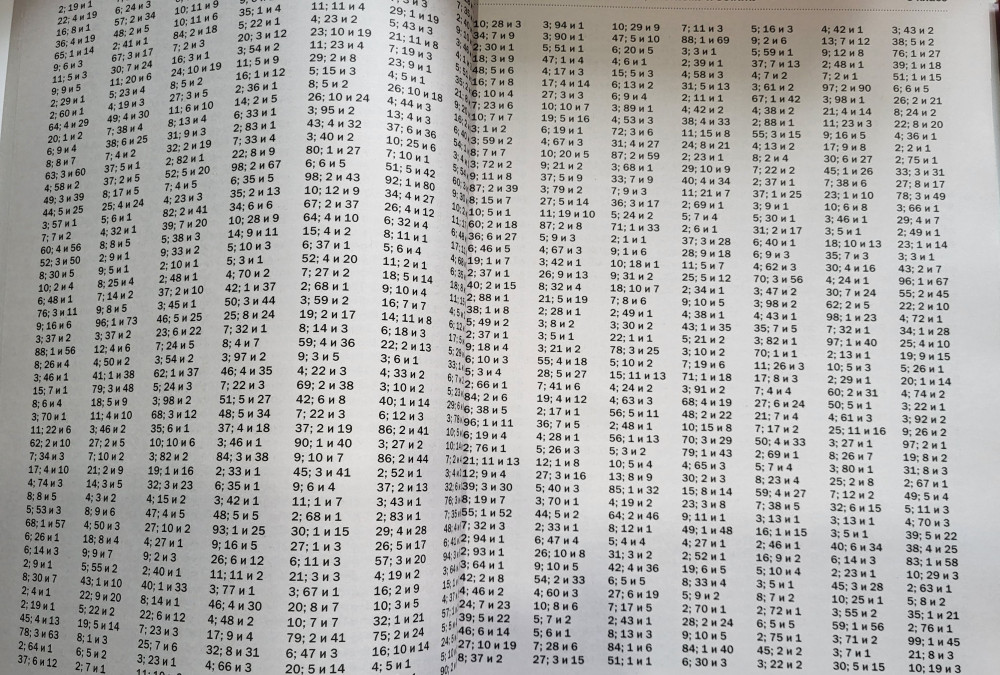 2; 19 и 1 6; 24 и 3 10; 11 и 9 35; 1 и 4 11; 11 и 4 5; 43 и 3
22; 4 и 19 57; 2 и 34 10; 11 и 6 5; 22 и 1 4; 23 и 2 29; 1 и 19
16; 8 и 1 48; 2 и 5 84; 2 и 18 20; 3 и 12 23; 10 и 19 21; 11 и 8
36; 4 и 19 2; 41 и 1 7; 2 и 3 3; 54 и 2 11; 23 и 4 7; 19 и 3
65; 1 и 14 67; 3 и 17 16; 3 и 1 11; 5 и 9 29; 2 и 8 23; 9 и 1
9; 6 и 3 30; 7 и 24 24; 10 и 19 16; 1 и 12 5; 15 и 3 4; 5 и 1
11; 5 и 3 11; 20 и 6 8; 5 и 2 2; 36 и 1 8; 5 и 2 26; 10 и 18
9; 9 и 5 5; 23 и 4 27; 3 и 5 14; 2 и 5 26; 10 и 24 4; 44 и 3
2; 29 и 1 4; 19 и 3 11; 6 и 10 6; 33 и 1 3; 95 и 2 13; 4 и 3
2; 60 и 1 49; 4 и 30 8; 13 и 4 2; 83 и 1 43; 4 и 32 37; 6 и 36
64; 4 и 29 7; 38 и 4 31; 9 и 3 7; 33 и 4 3; 40 и 2 10; 25 и 6
20; 1 и 2 38; 6 и 25 32; 2 и 19 22; 8 и 9 80; 1 и 27 7; 10 и 1
6; 9 и 4 7; 4 и 2 2; 82 и 1 98; 2 и 67 6; 6 и 5 51; 5 и 42
8; 8 и 7 37; 5 и 1 52; 5 и 20 6; 35 и 5 98; 2 и 43 92; 1 и 80
63; 3 и 60 37; 2 и 5 7; 4 и 5 35; 2 и 13 10; 12 и 9 34; 4 и 27
4; 58 и 2 8; 17 и 5 4; 23 и 3 34; 6 и 6 67; 2 и 37 26; 4 и 12
49; 3 и 39 25; 4 и 24 82; 2 и 41 10; 28 и 9 64; 4 и 10 6; 32 и 4
44; 5 и 25 5; 6 и 1 39; 7 и 20 14; 9 и 11 15; 4 и 2 8; 11 и 1
3; 57 и 1 4; 32 и 1 5; 38 и 3 5; 10 и 3 6; 37 и 1 5; 6 и 4
7; 7 и 2 8; 8 и 5 9; 33 и 2 5; 3 и 1 52; 4 и 20 11; 2 и 1
60; 4 и 56 2; 9 и 1 2; 10 и 1 4; 70 и 2 7; 27 и 2 18; 5 и 14
52; 3 и 50 9; 5 и 1 2; 48 и 1 42; 1 и 37 2; 68 и 1 9; 10 и 4
8; 30 и 5 8; 25 и 4 37; 2 и 10 50; 3 и 44 3; 59 и 2 16; 7 и 7
10; 2 и 4 7; 14 и 2 3; 45 и 1 25; 8 и 24 19; 2 и 17 14; 11 и 8
6; 48 и 1 9; 8 и 5 46; 5 и 25 7; 32 и 1 8; 14 и 3 6; 18 и 3
76; 3 и 11 96; 1 и 73 23; 6 и 22 8; 4 и 7 59; 4 и 36 22; 2 и 13
9; 16 и 6 3; 37 и 2 7; 24 и 5 3; 97 и 2 9; 3 и 5 3; 6 и 1
3; 37 и 2 12; 4 и 6 3; 54 и 2 46; 4 и 35 4; 22 и 3 4; 33 и 2
88; 1 и 56 4; 50 и 2 62; 1 и 37 7; 22 и 3 69; 2 и 38 3; 10 и 2
8; 26 и 4 41; 1 и 38 5; 24 и 3 51; 5 и 27 42; 6 и 8 40; 1 и 14
3; 46 и 1 79; 3 и 48 3; 98 и 2 48; 5 и 34 7; 22 и 3 6; 12 и 3
15; 7 и 1 18; 5 и 9 68; 3 и 12 37; 4 и 18 37; 2 и 19 86; 2 и 41
8; 6 и 4 11; 4 и 10 35; 6 и 1 3; 46 и 1 90; 1 и 40 3; 27 и 2
3; 70 и 1 3; 46 и 2 10; 10 и 6 84; 3 и 38 9; 10 и 7 86; 2 и 44
11; 22 и 6 27; 2 и 5 3; 82 и 2 2; 33 и 1 45; 3 и 41 2; 52 и 1
62; 2 и 10 7; 10 и 2 19; 1 и 16 6; 35 и 1 9; 6 и 4 37; 2 и 13
7; 34 и 3 21; 2 и 9 32; 3 и 23 3; 42 и 1 11; 1 и 7 3; 43 и 1
17; 4 и 10 14; 3 и 5 4; 15 и 2 48; 5 и 5 2; 68 и 1 2; 83 и 1
4; 74 и 3 4; 3 и 2 47; 4 и 5 93; 1 и 25 30; 1 и 15 29; 4 и 28
8; 8 и 5 8; 9 и 6 27; 10 и 2 9; 16 и 5 27; 1 и 3 26; 5 и 17
5; 53 и 3 4; 50 и 3 4; 27 и 1 26; 6 и 12 6; 11 и 3 57; 3 и 20
68; 1 и 57 18; 8 и 4 9; 2 и 3 11; 11 и 2 21; 3 и 3 4; 19 и 2
6; 26 и 1 9; 9 и 7 2; 40 и 1 3; 77 и 1 3; 67 и 1 16; 2 и 9
6; 14 и 3 5; 55 и 2 40; 1 и 33 46; 4 и 30 20; 8 и 7 10; 3 и 5
2; 9 и 1 43; 1 и 10 8; 14 и 1 4; 48 и 2 10; 7 и 7 32; 1 и 21
8; 30 и 7 22; 9 и 20 22; 6 и 12 17; 9 и 4 79; 2 и 41 75; 2 и 24
2; 4 и 1 5; 22 и 2 7; 23 и 3 32; 8 и 31 6; 47 и 3 16; 10 и 14
2; 19 и 1 19; 5 и 14 25; 7 и 6 4; 66 и 3 20; 5 и 14 4; 5 и 1
45; 4 и 13 8; 1 и 3 3; 23 и 1
78; 3 и 63 6; 5 и 2
2; 64 и 1 2; 7 и 1
37; 6 и 12
10; 28 и 3 3; 94 и 1 10; 29 и 9 7; 11 и 3 5; 16 и 3 4; 42 и 1 3; 43 и 2
34; 7 и 9 3; 90 и 1 47; 5 и 10 88; 1 и 69 9; 2 и 6 13; 7 и 12 38; 5 и 2
2; 30 и 1 5; 51 и 1 6; 20 и 5 3; 3 и 1 5; 59 и 1 9; 12 и 8 76; 1 и 27
18; 3 и 9 47; 1 и 4 4; 6 и 1 2; 39 и 1 37; 7 и 13 2; 48 и 1 39; 1 и 18
48; 5 и 6 4; 17 и 3 15; 5 и 3 4; 58 и 3 4; 7 и 2 7; 2 и 1 51; 1 и 15
16; 7 и 8 17; 4 и 14 6; 13 и 2 31; 5 и 13 3; 61 и 2 97; 2 и 90 6; 6 и 5
6; 10 и 4 27; 3 и 3 6; 9 и 4 2; 11 и 1 67; 1 и 42 3; 98 и 1 26; 2 и 21
7; 23 и 6 10; 10 и 7 3; 89 и 1 4; 42 и 2 4; 38 и 2 21; 4 и 14 8; 24 и 2
10; 7 и 7 19; 5 и 16 4; 53 и 2 38; 4 и 33 2; 88 и 1 11; 23 и 3 22; 8 и 20
3; 1 и 2 6; 19 и 1 72; 3 и 6 11; 15 и 8 55; 3 и 15 9; 16 и 5 4; 36 и 1
3; 59 и 2 4; 67 и 3 31; 4 и 27 24; 8 и 21 4; 13 и 2 17; 9 и 8 2; 2 и 1
8; 7 и 3 10; 20 и 5 87; 2 и 59 2; 23 и 1 8; 2 и 4 30; 6 и 27 2; 75 и 1
3; 72 и 2 9; 21 и 2 3; 68 и 1 29; 10 и 9 7; 22 и 2 45; 1 и 26 33; 3 и 31
9; 11 и 8 37; 5 и 9 33; 7 и 9 40; 4 и 34 2; 37 и 1 7; 38 и 6 27; 8 и 17
87; 2 и 39 3; 79 и 2 7; 9 и 3 11; 21 и 7 37; 1 и 25 23; 1 и 10 78; 3 и 49
8; 15 и 7 27; 5 и 14 36; 3 и 17 2; 69 и 1 3; 9 и 1 10; 6 и 8 3; 66 и 1
10; 5 и 1 11; 19 и 10 5; 24 и 2 5; 7 и 4 5; 30 и 1 3; 46 и 1 29; 4 и 7
60; 2 и 18 87; 2 и 8 71; 1 и 33 2; 6 и 1 31; 2 и 17 3; 5 и 1 2; 49 и 1
36; 6 и 27 5; 9 и 3 2; 1 и 1 37; 3 и 28 6; 40 и 1 18; 10 и 13 23; 1 и 14
6; 46 и 5 4; 67 и 3 9; 1 и 6 28; 9 и 18 6; 9 и 3 35; 7 и 3 3; 3 и 1
19; 1 и 7 3; 42 и 1 10; 18 и 1 11; 5 и 7 4; 62 и 3 30; 4 и 16 43; 2 и 7
2; 37 и 1 26; 9 и 13 9; 31 и 2 25; 5 и 12 70; 3 и 56 4; 24 и 1 96; 1 и 67
40; 2 и 15 8; 32 и 4 18; 10 и 7 2; 34 и 1 3; 47 и 2 30; 7 и 24 55; 2 и 45
2; 88 и 1 21; 5 и 19 7; 8 и 6 9; 10 и 5 3; 98 и 2 62; 2 и 5 22; 2 и 10
38; 1 и 8 2; 28 и 1 2; 49 и 1 4; 38 и 1 4; 43 и 1 98; 1 и 23 4; 72 и 1
5; 49 и 2 3; 8 и 2 3; 30 и 2 43; 1 и 35 35; 7 и 5 7; 32 и 1 34; 1 и 28
2; 37 и 1 3; 5 и 1 22; 1 и 1 5; 21 и 2 3; 82 и 1 97; 1 и 40 25; 4 и 10
9; 18 и 4 3; 21 и 2 78; 3 и 25 3; 10 и 2 70; 1 и 1 2; 13 и 1 19; 9 и 15
6; 10 и 3 55; 4 и 18 5; 10 и 2 7; 19 и 6 11; 26 и 3 10; 5 и 3 5; 26 и 1
5; 3 и 4 28; 5 и 27 15; 11 и 13 71; 1 и 18 17; 8 и 3 2; 29 и 1 20; 1 и 14
2; 66 и 1 7; 41 и 6 4; 24 и 2 3; 91 и 2 7; 4 и 4 60; 2 и 31 4; 74 и 2
84; 2 и 6 19; 4 и 12 4; 63 и 3 68; 4 и 19 27; 6 и 24 50; 5 и 1 3; 22 и 1
6; 38 и 5 2; 17 и 1 56; 5 и 11 48; 2 и 22 21; 7 и 4 4; 61 и 3 3; 92 и 2
96; 1 и 11 36; 7 и 5 2; 48 и 1 10; 15 и 8 7; 17 и 2 25; 11 и 16 9; 26 и 2
6; 19 и 4 4; 28 и 1 56; 1 и 13 70; 3 и 29 50; 4 и 33 3; 27 и 1 97; 2 и 1
2; 76 и 1 5; 26 и 3 5; 3 и 2 79; 1 и 43 2; 69 и 1 8; 26 и 7 19; 8 и 2
21; 11 и 13 12; 1 и 8 10; 5 и 4 4; 65 и 3 5; 7 и 4 3; 80 и 1 31; 8 и 3
12; 9 и 4 27; 3 и 16 13; 8 и 9 30; 2 и 3 8; 23 и 4 25; 2 и 8 2; 67 и 1
39; 3 и 30 5; 40 и 3 85; 1 и 32 15; 8 и 14 59; 4 и 27 7; 12 и 2 49; 5 и 4
8; 19 и 7 3; 70 и 1 4; 19 и 2 23; 3 и 8 7; 38 и 5 32; 6 и 15 5; 11 и 3
55; 1 и 52 44; 5 и 2 64; 2 и 46 9; 11 и 1 3; 13 и 1 3; 13 и 1 4; 70 и 3
7; 32 и 3 2; 33 и 1 8; 12 и 1 49; 1 и 48 16; 1 и 15 3; 5 и 1 39; 5 и 22
2; 94 и 1 6; 47 и 4 5; 4 и 4 4; 27 и 1 2; 46 и 1 40; 6 и 34 38; 4 и 25
2; 93 и 1 26; 10 и 8 31; 3 и 2 2; 52 и 1 16; 9 и 2 6; 14 и 3 83; 1 и 58
3; 64 и 1 9; 10 и 5 42; 4 и 36 19; 6 и 5 5; 10 и 4 2; 23 и 1 10; 29 и 3
42; 2 и 8 54; 2 и 33 6; 5 и 5 8; 33 и 4 3; 5 и 1 45; 3 и 28 2; 63 и 1
4; 46 и 2 4; 60 и 3 27; 6 и 19 5; 9 и 2 8; 7 и 2 10; 25 и 1 5; 8 и 2
24; 7 и 23 10; 8 и 6 7; 17 и 5 2; 70 и 1 2; 72 и 1 3; 55 и 2 35; 1 и 21
39; 5 и 22 5; 7 и 2 2; 43 и 1 28; 2 и 24 6; 5 и 5 59; 1 и 56 2; 76 и 1
46; 6 и 14 5; 6 и 1 8; 13 и 3 9; 10 и 5 2; 75 и 1 3; 71 и 2 99; 1 и 45
27; 10 и 19 7; 28 и 6 84; 1 и 6 84; 1 и 40 45; 2 и 2 3; 7 и 1 21; 8 и 3
8; 37 и 2 27; 3 и 15 51; 1 и 1 6; 30 и 3 3; 22 и 2 30; 5 и 15 10; 19 и 3